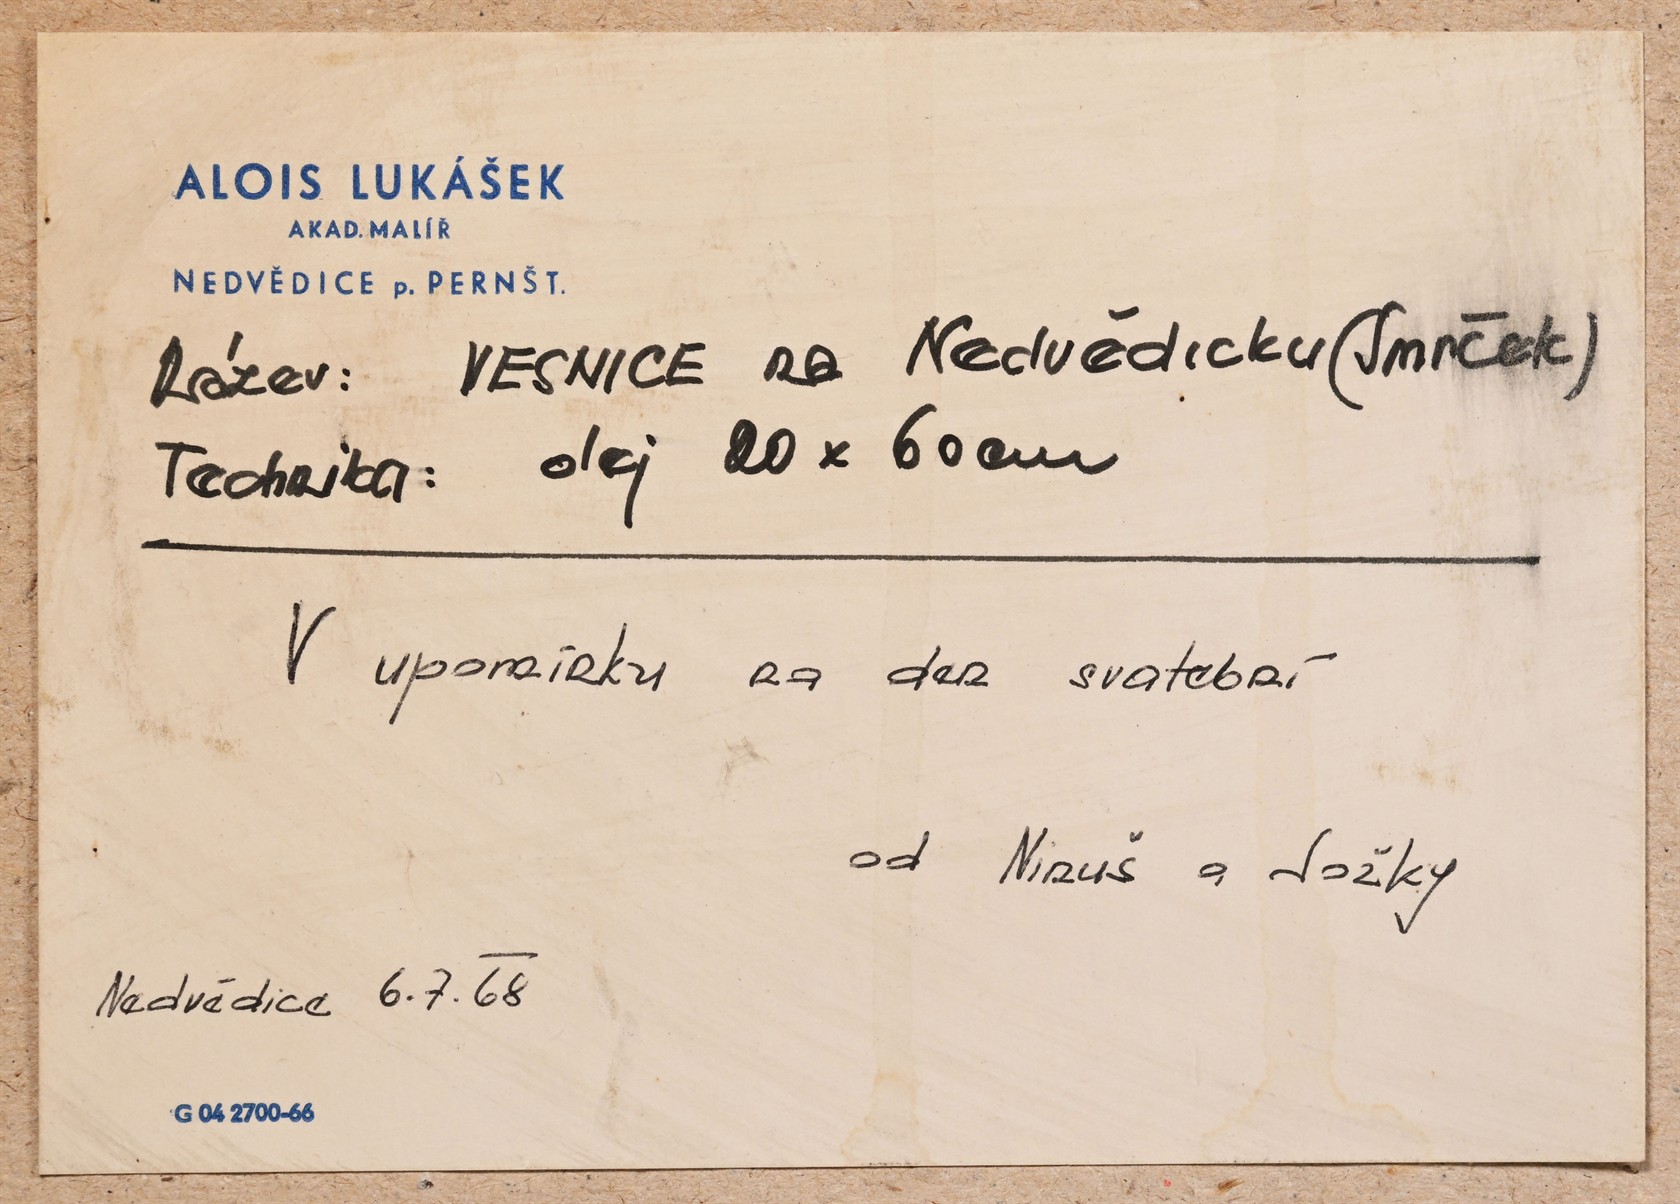 ALOIS LUKÁŠEK
AKAD. MALÍŘ
NEDVĚDICE p. PERNŠT.
Název: VESNICE na Nedvědicku (Smrček)
Technika: olej 20 x 60 cm
V upomínku na den svatební
od Niruš a Jožky
Nedvědice 6.7.68
G 04 2700-66